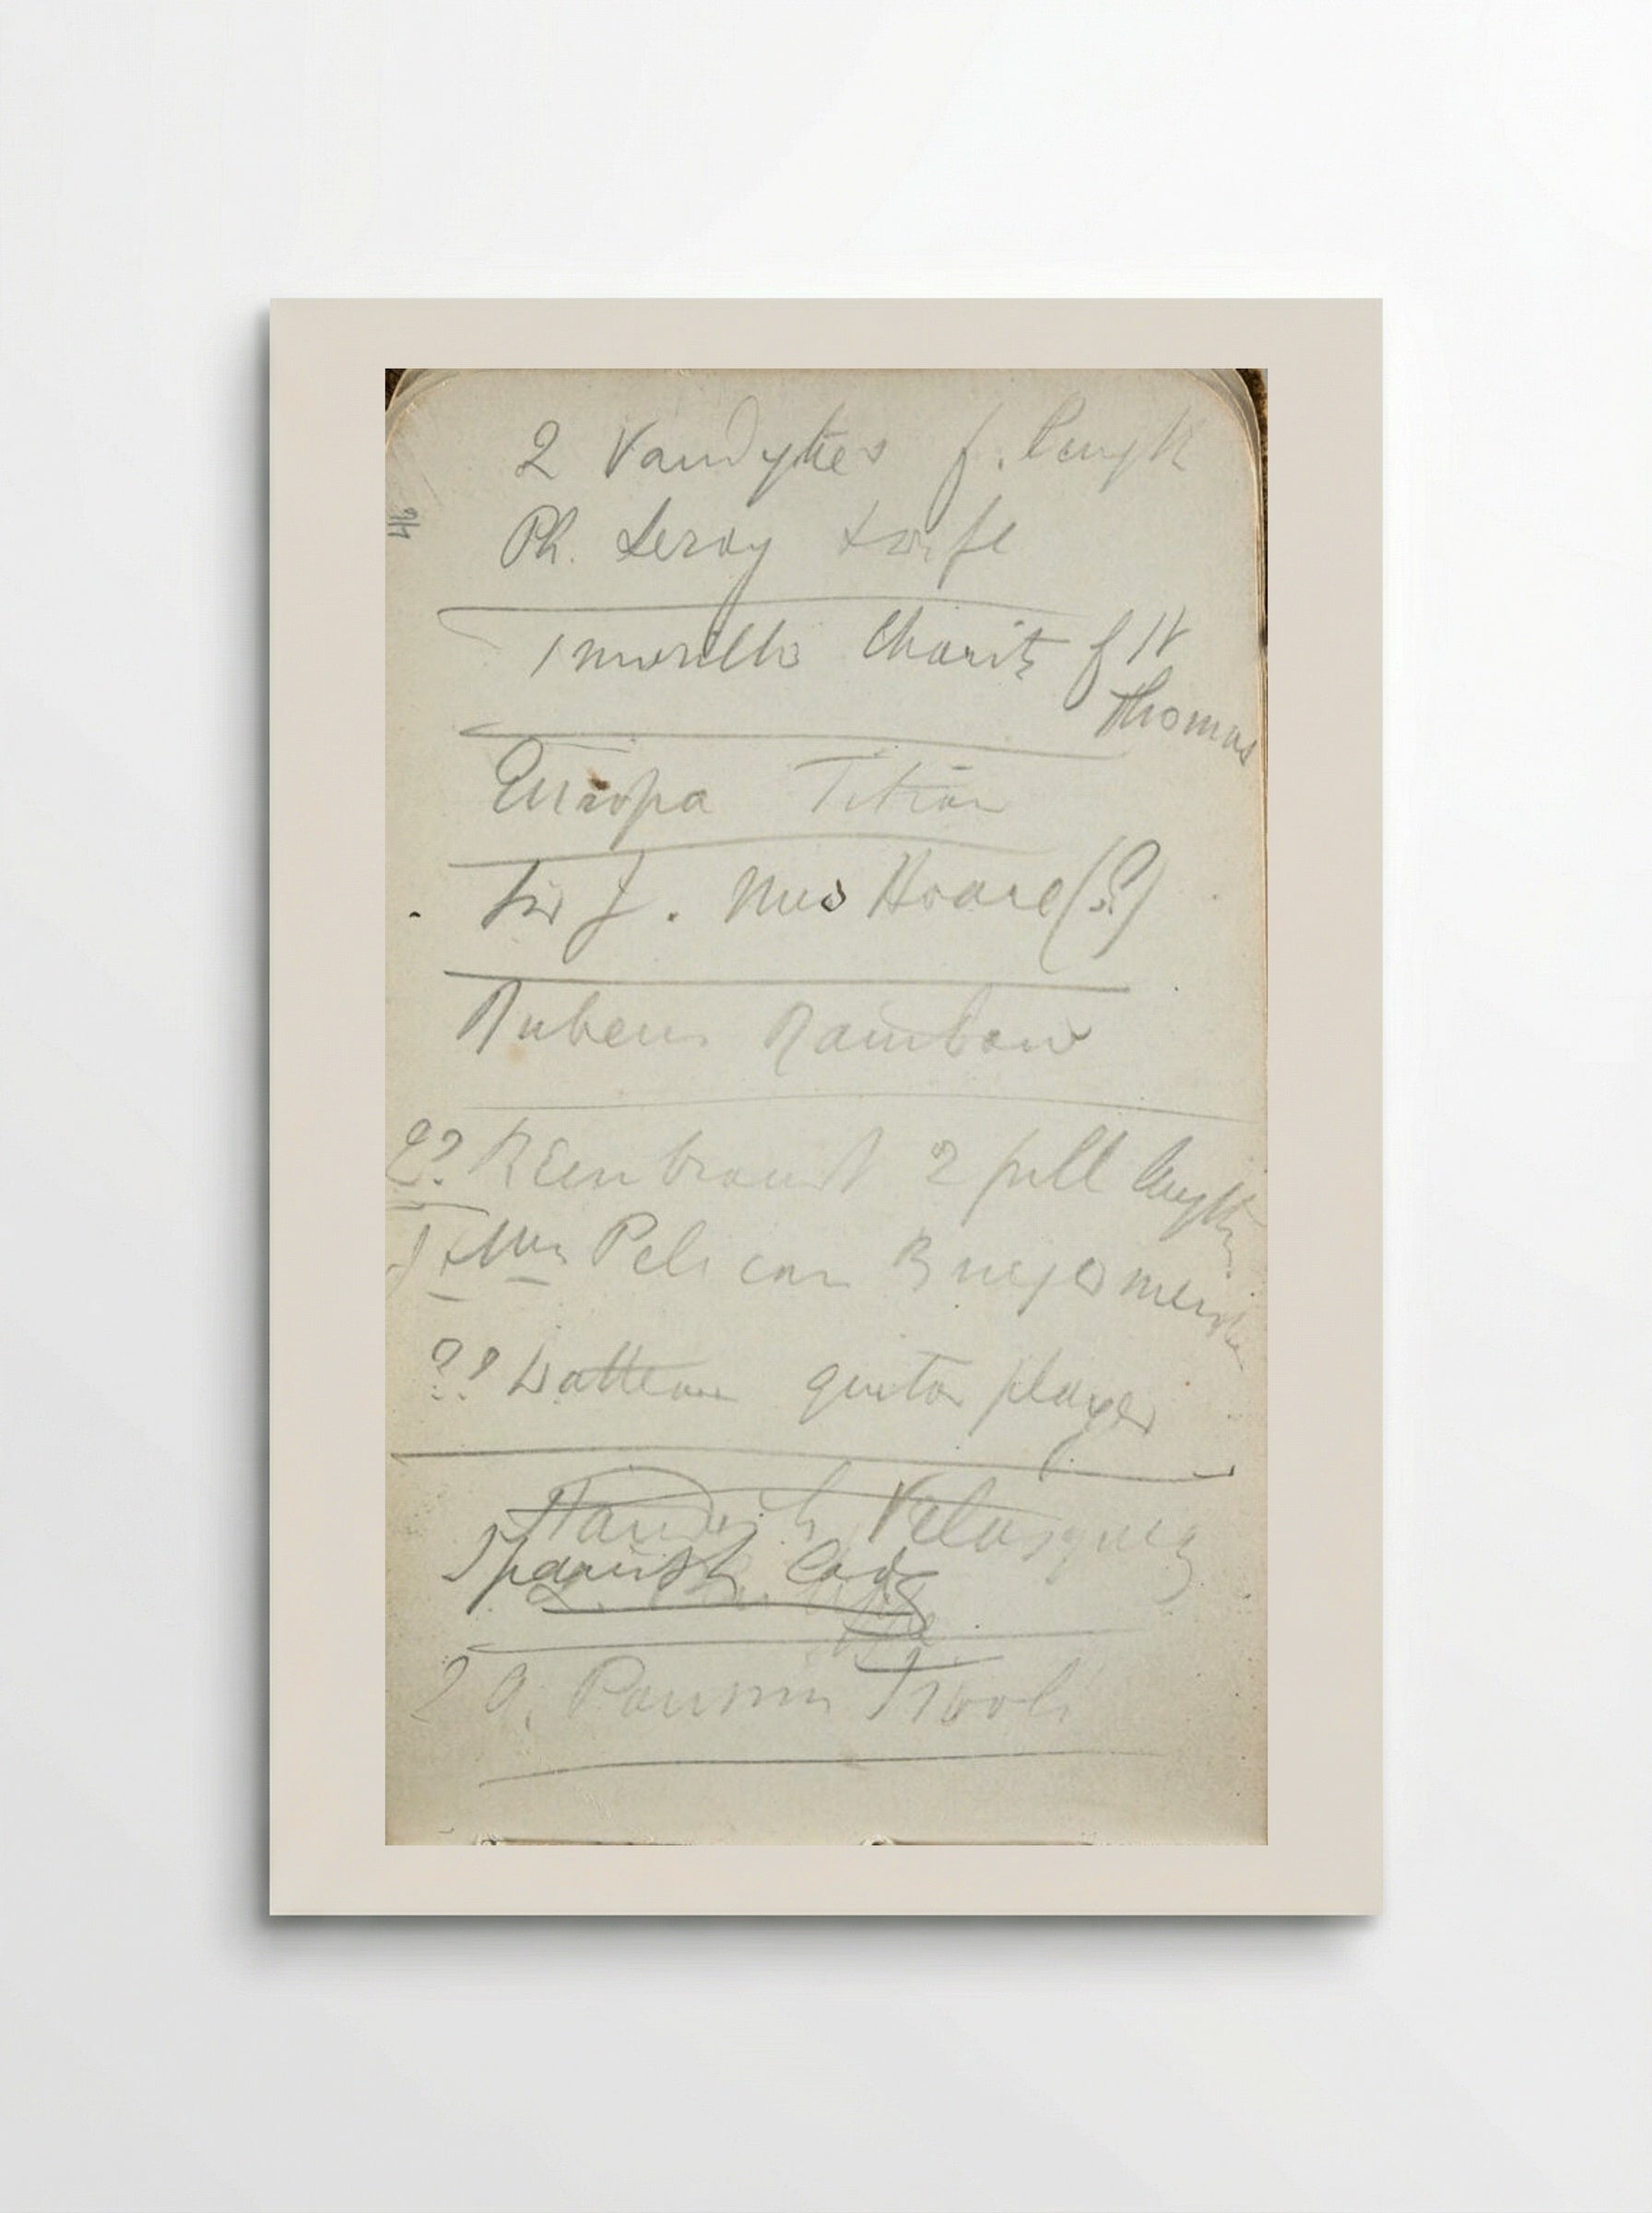 2 Vandykes f. length
Ph. Leroy & wife
1 murillo Charity of St
Thomas
Europa Titian
Sir J. Mrs Hoare (?)
Rubens Rainbow
?? Rembrandt 2 full lengths
& Mrs Pelican Burgomeister
?? Watteau guitar player
Velasquez
Spanish Lady
2 G. Poussin Tivoli